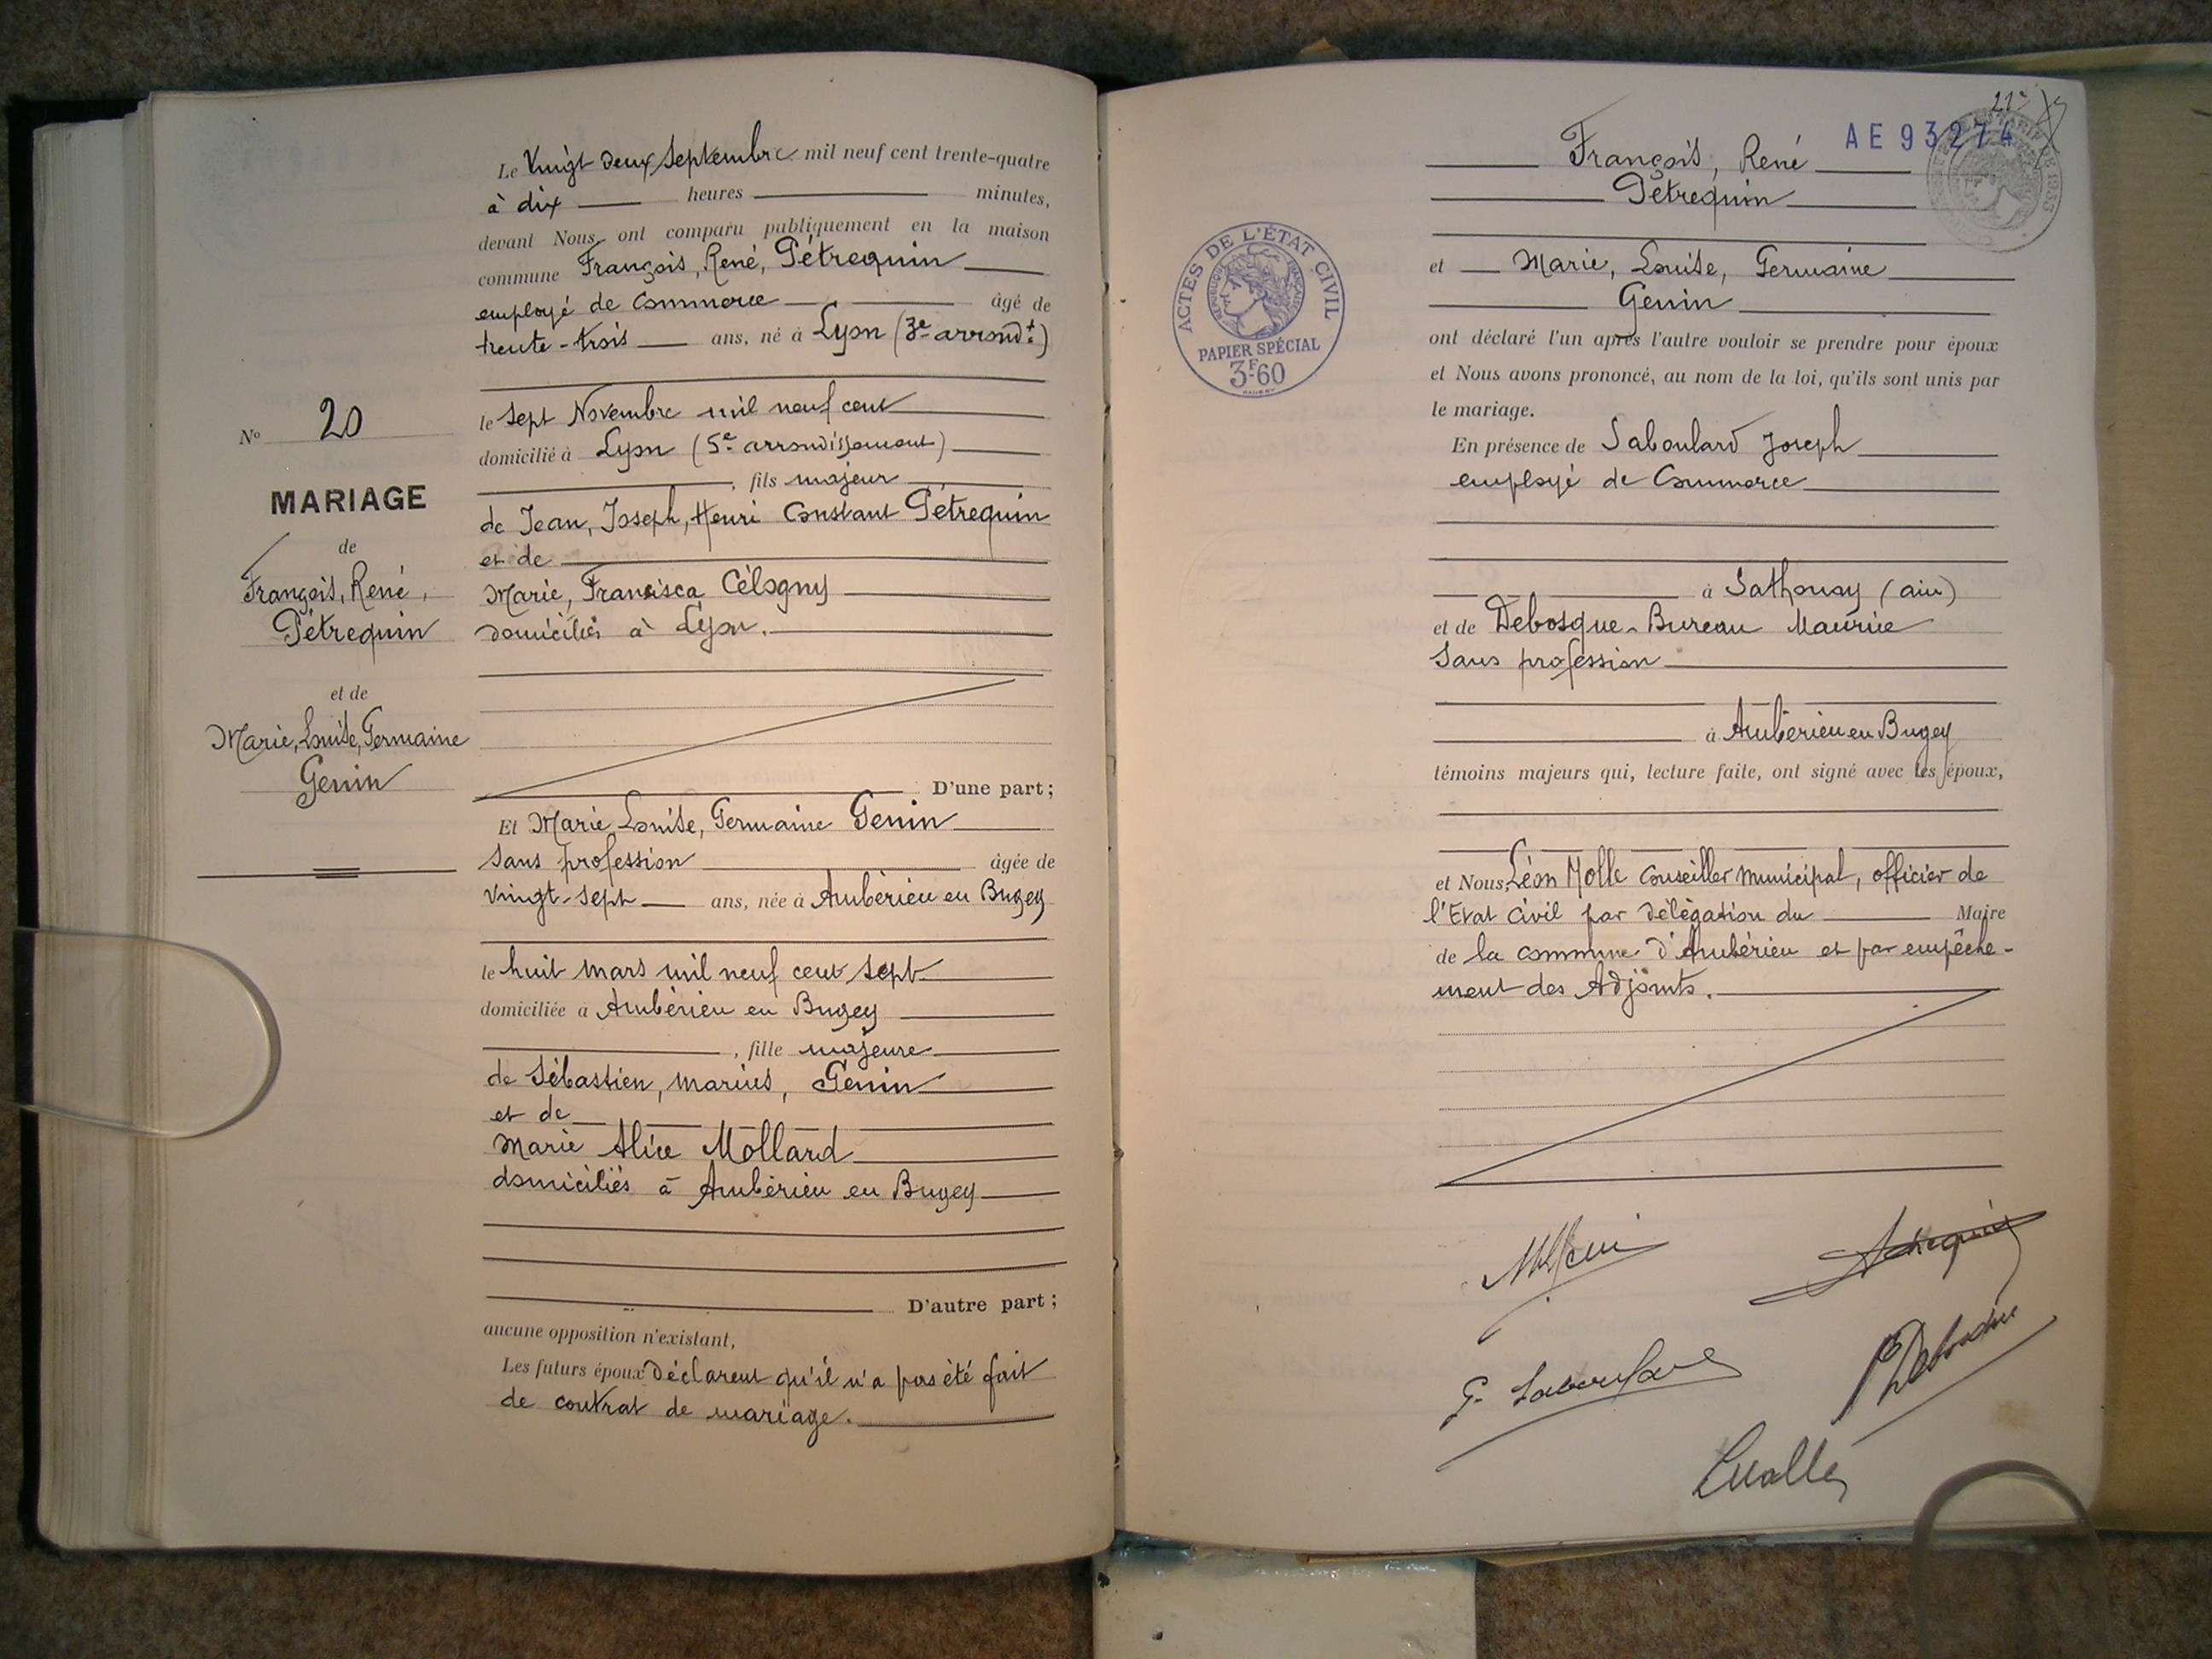 Le Vingt deux Septembre mil neuf cent trente-quatre
à dix heures minutes,
devant Nous ont comparu publiquement en la maison
commune François, René, Pétrequin
employé de Commerce âgé de
trente-trois ans, né à Lyon (3e arrondt)
le sept Novembre mil neuf cent
domicilié à Lyon (5e arrondissement)
, fils majeur
de Jean, Joseph, Henri Constant Pétrequin
et de
Marie, Francisca Célogny
domiciliés à Lyon.
D'une part;
Et Marie, Louise, Germaine Genin
sans profession âgée de
vingt-sept ans, née à Ambérieu en Bugey
le huit mars mil neuf cent sept
domiciliée à Ambérieu en Bugey
, fille majeure
de Sébastien, Marius, Genin
et de
Marie Alice Mollard
domiciliés à Ambérieu en Bugey
D'autre part;
aucune opposition n'existant,
Les futurs époux déclarent qu'il n'a pas été fait
de contrat de mariage.
No 20
MARIAGE
de
François, René,
Pétrequin
et de
Marie, Louise, Germaine
Genin
AE 93274
François, René
Pétrequin
et Marie, Louise, Germaine
Genin
ont déclaré l'un après l'autre vouloir se prendre pour époux
et Nous avons prononcé, au nom de la loi, qu'ils sont unis par
le mariage.
En présence de Laboulard Joseph
employé de Commerce
à Sathonay (ain)
et de Debosque-Bureau Maurice
sans profession
à Ambérieu en Bugey
témoins majeurs qui, lecture faite, ont signé avec les époux,
et Nous, Léon Molle Conseiller Municipal, officier de
l'Etat Civil par délégation du Maire
de la commune d'Ambérieu et par empêche-
ment des Adjoints.
ACTES DE L'ÉTAT CIVIL
RÉPUBLIQUE FRANÇAISE
PAPIER SPÉCIAL
3F60